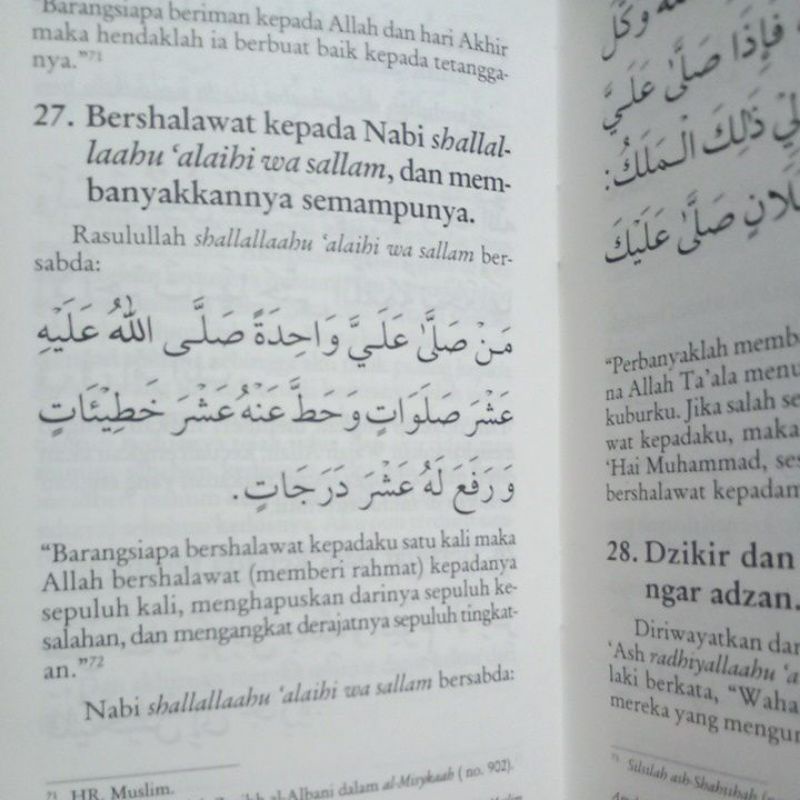 "Barangsiapa beriman kepada Allah dan hari Akhir
maka hendaklah ia berbuat baik kepada tetangga-
nya."71
27. Bershalawat kepada Nabi shallal-
laahu 'alaihi wa sallam, dan mem-
banyakkannya semampunya.
Rasulullah shallallaahu 'alaihi wa sallam ber-
sabda:
مَنْ صَلَّى عَلَيَّ وَاحِدَةً صَلَّى اللهُ عَلَيْهِ
عَشْرَ صَلَوَاتٍ وَحَطَّ عَنْهُ عَشْرَ خَطِيْئَاتٍ
وَرَفَعَ لَهُ عَشْرَ دَرَجَاتٍ.
"Barangsiapa bershalawat kepadaku satu kali maka
Allah bershalawat (memberi rahmat) kepadanya
sepuluh kali, menghapuskan darinya sepuluh ke-
salahan, dan mengangkat derajatnya sepuluh tingkat-
an."72
Nabi shallallaahu 'alaihi wa sallam bersabda:
71 HR. Muslim.
al-Albani dalam al-Misykaah (no. 902).
وَكَّلَ
فَإِذَا صَلَّى عَلَيَّ
ذَلِكَ الْمَلَكُ:
صَلَّى عَلَيْكَ
"Perbanyaklah
na Allah Ta'ala
kuburku. Jika salah
wat kepadaku, maka
'Hai Muhammad,
bershalawat
28. Dzikir dan
ngar adzan.
Diriwayatkan
'Ash radhiyallaahu
laki berkata,
mereka yang
Silsilah ash-Shahiihah